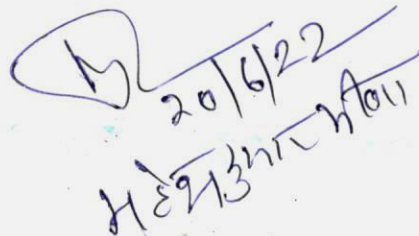 20/6/22
महेश कुमार मीणा